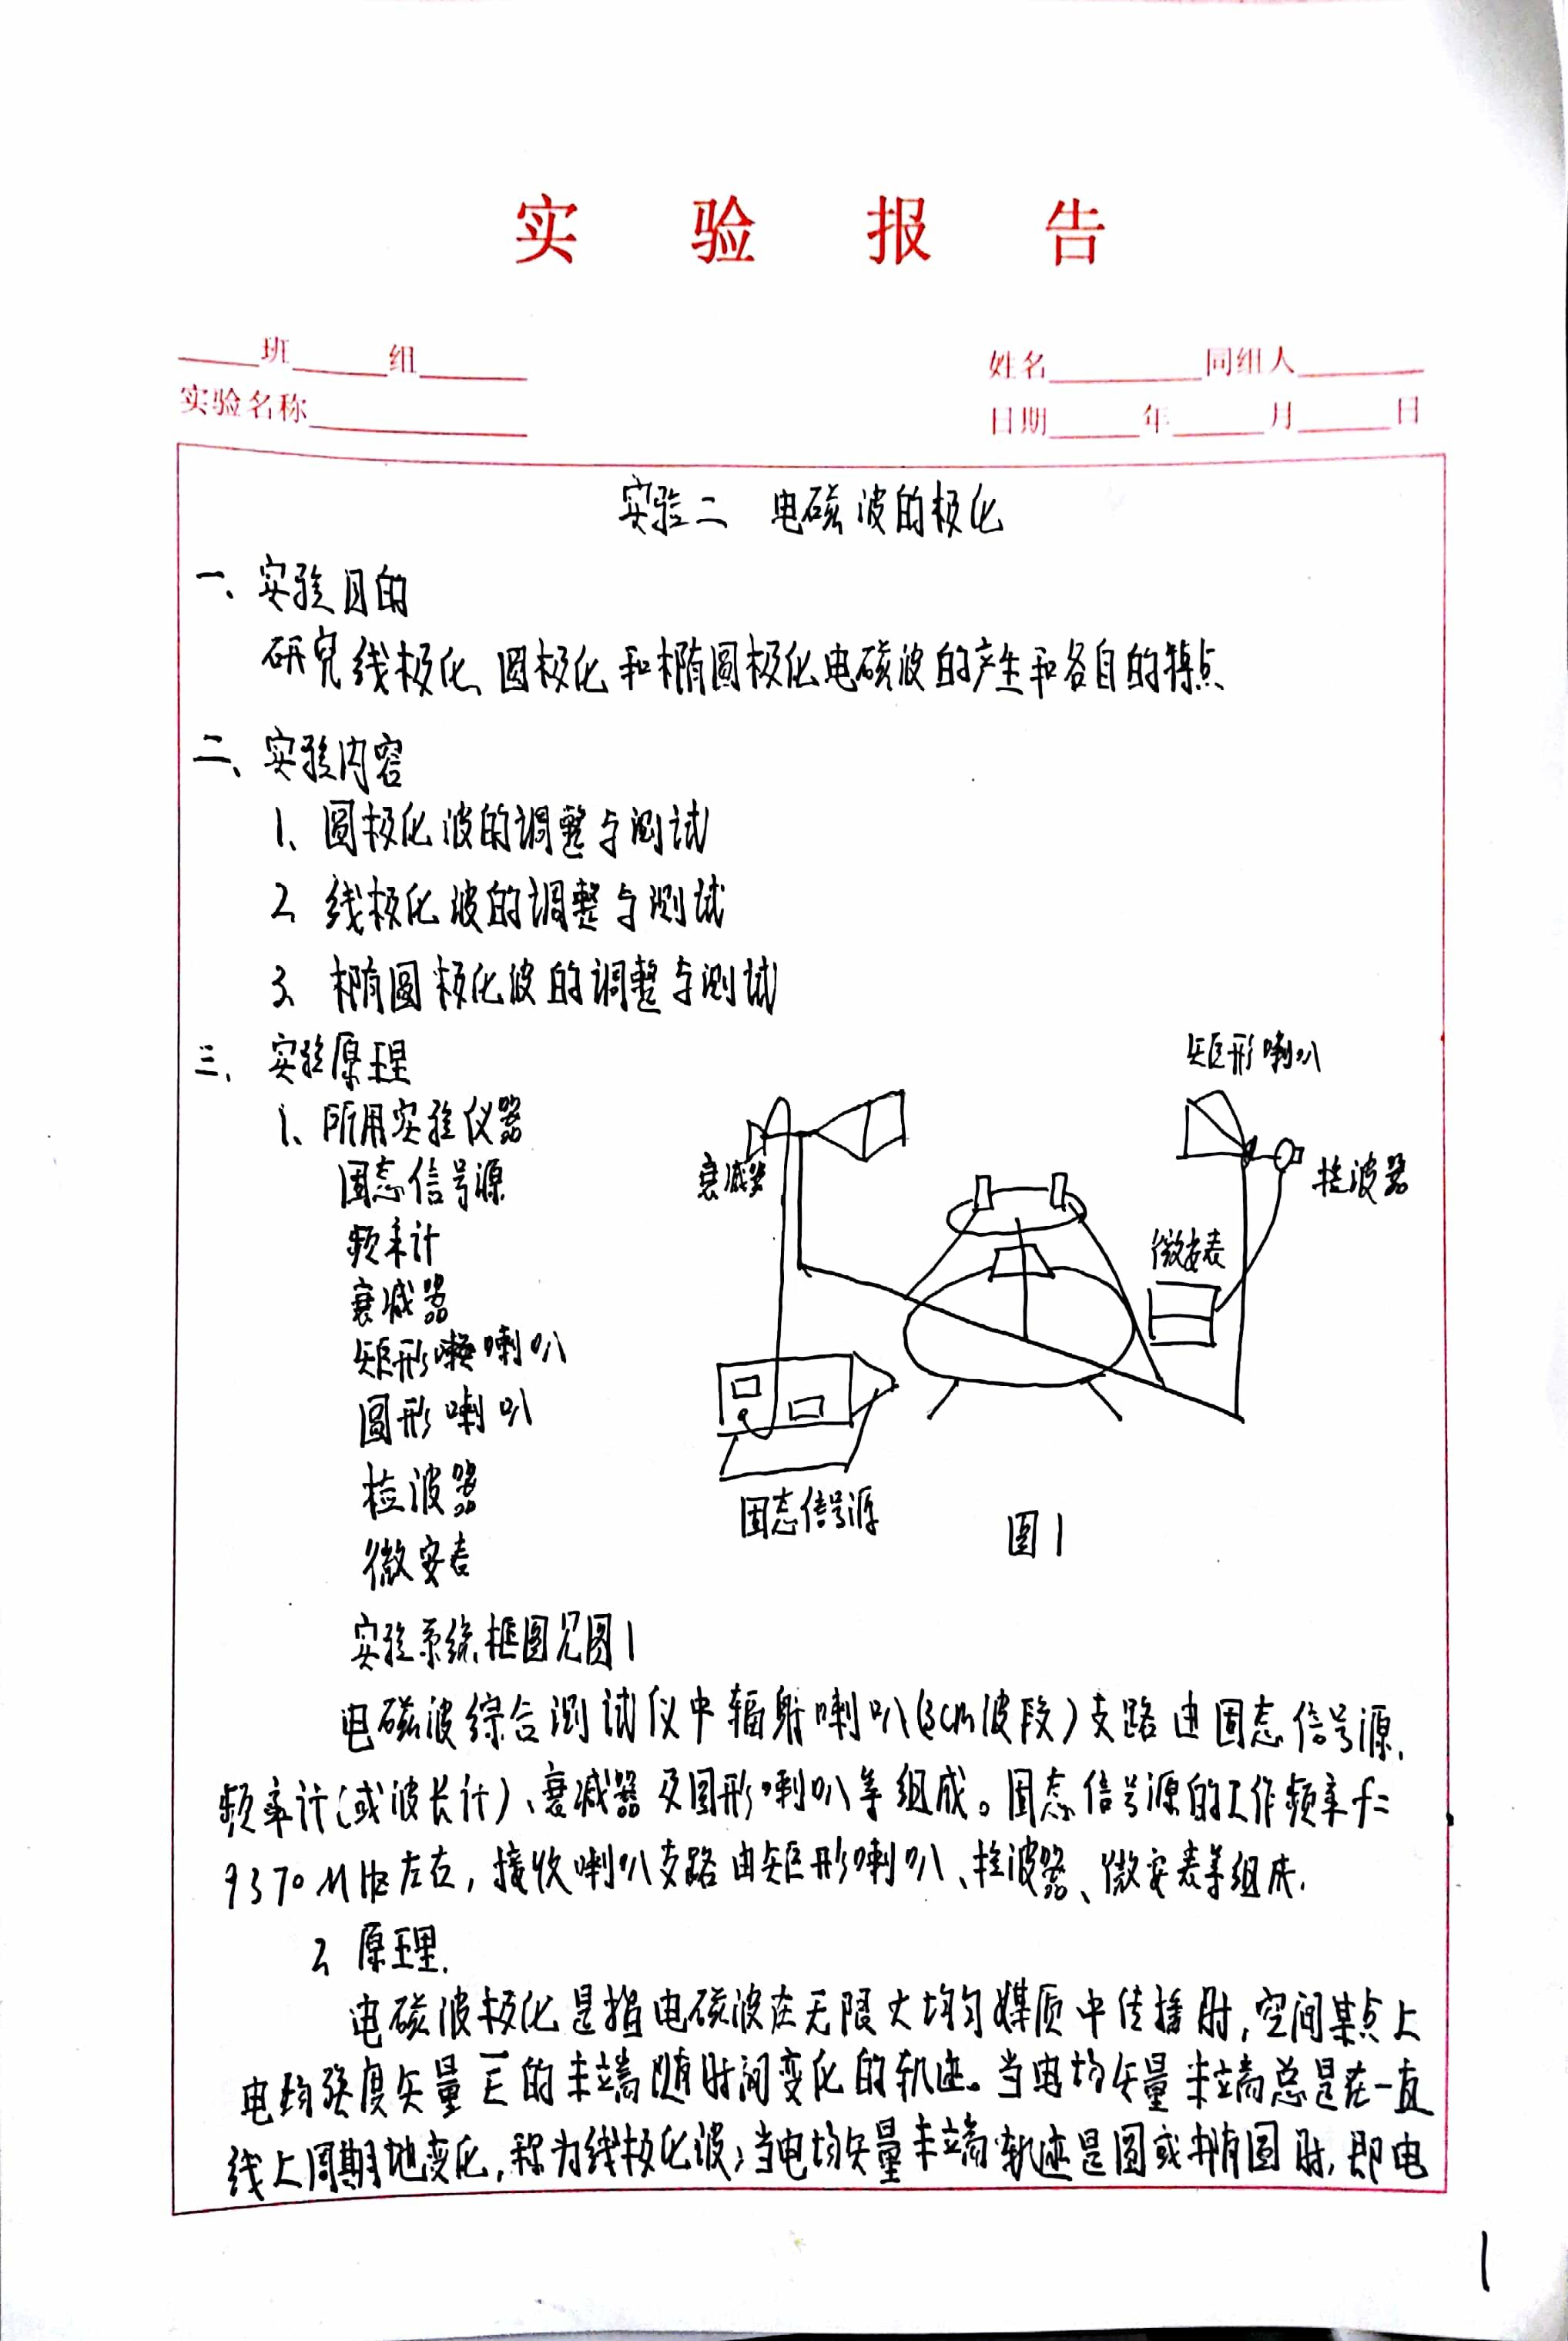 实验报告
____班______组______
姓名________同组人________
实验名称____________
日期_____年_____月_____日
实验二 电磁波的极化
一、实验目的
研究线极化、圆极化和椭圆极化电磁波的产生和各自的特点
二、实验内容
1、圆极化波的调整与测试
2、线极化波的调整与测试
3、椭圆极化波的调整与测试
三、实验原理
1、所用实验仪器
固态信号源
频率计
衰减器
矩形喇叭
圆形喇叭
检波器
微安表
矩形喇叭
衰减器
检波器
微安表
固态信号源
图1
实验系统框图见图1
电磁波综合测试仪中辐射喇叭(3cm波段)支路由固态信号源、
频率计(或波长计)、衰减器及圆形喇叭等组成。固态信号源的工作频率f=
9370MHz左右,接收喇叭支路由矩形喇叭、检波器、微安表等组成.
2、原理.
电磁波极化是指电磁波在无限大均匀媒质中传播时,空间某点上
电场强度矢量E的末端随时间变化的轨迹。当电场矢量末端总是在一直
线上周期地变化,称为线极化波;当电场矢量末端轨迹是圆或椭圆时,即电
1